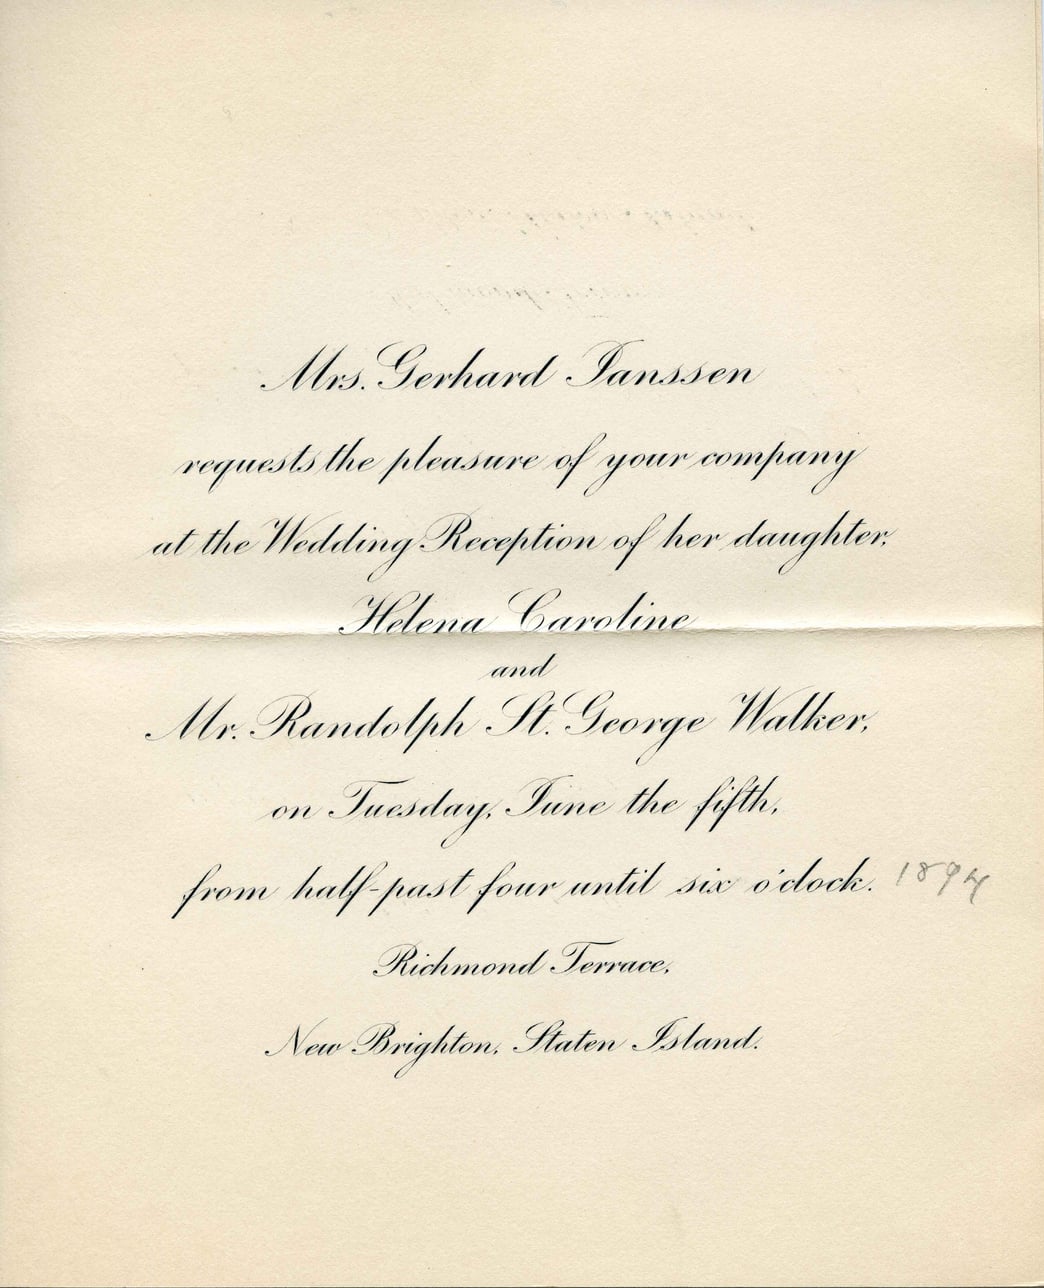 Mrs. Gerhard Janssen
requests the pleasure of your company
at the Wedding Reception of her daughter,
Helena Caroline
and
Mr. Randolph St. George Walker,
on Tuesday, June the fifth,
from half-past four until six o'clock. 1894
Richmond Terrace,
New Brighton, Staten Island.